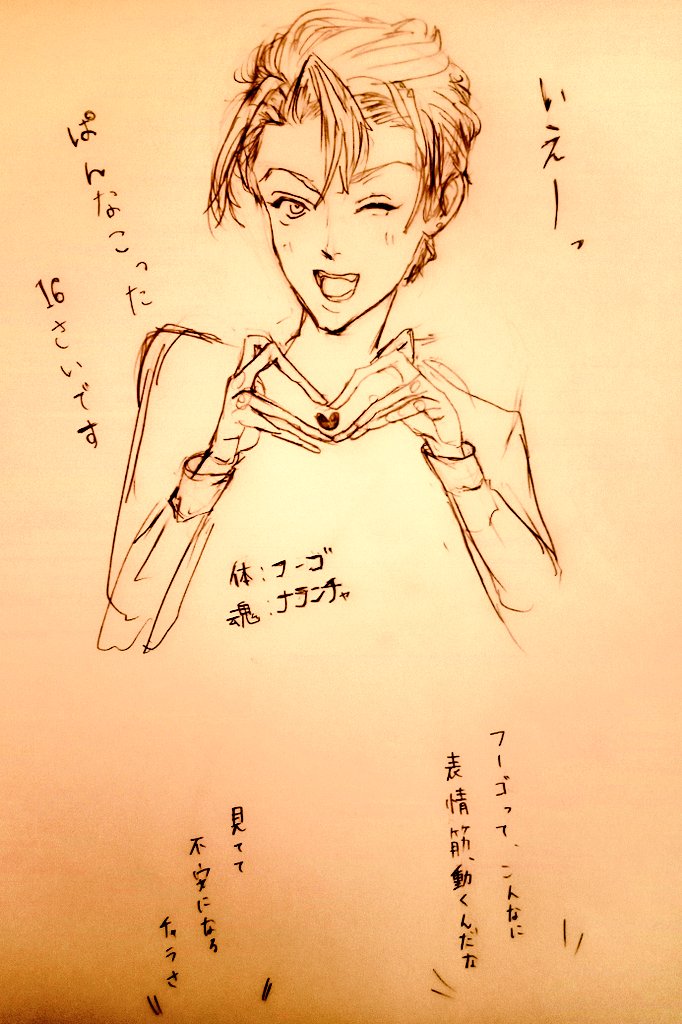 いえーっ
ぱんなこった
16さいです
体:フーゴ
魂:ナランチャ
フーゴって、こんなに
表情筋、動くんだな
見てて
不安になる
チャラさ